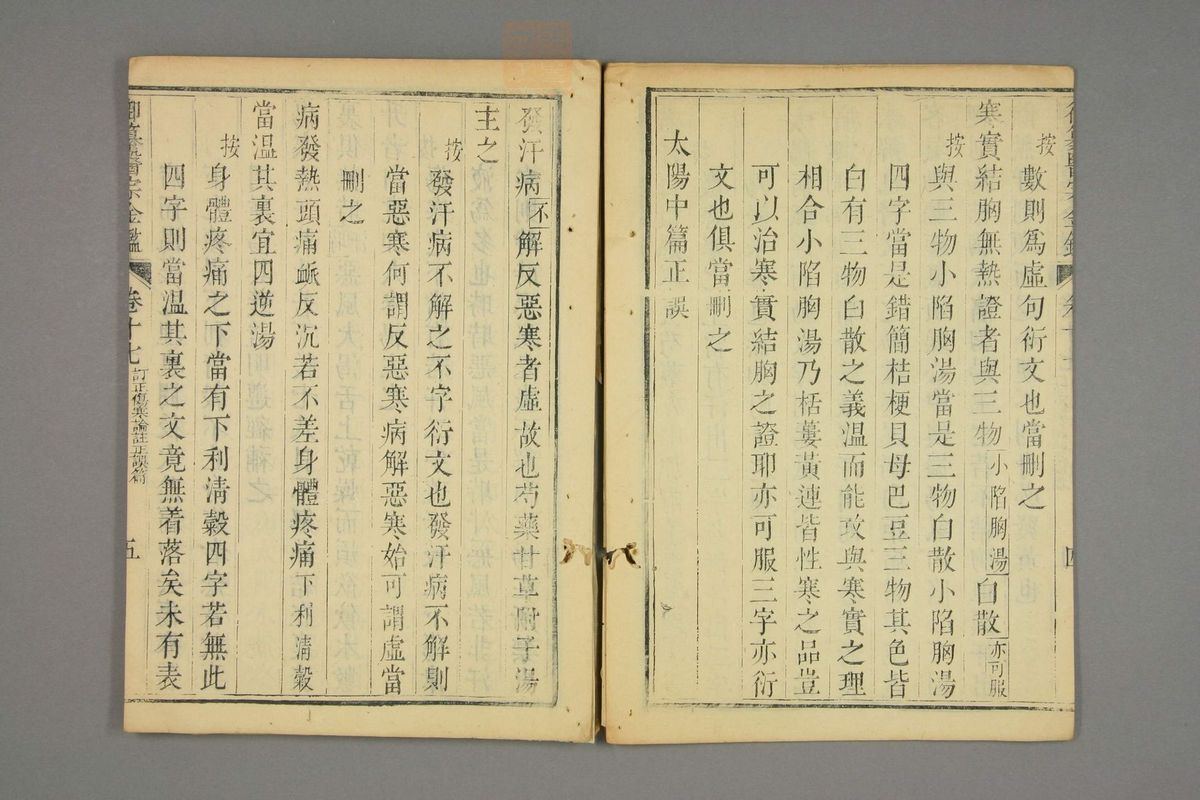 按數則爲虛句衍文也當刪之
寒實結胸無熱證者與三物小陷胸湯白散亦可服
按與三物小陷胸湯當是三物白散小陷胸湯
四字當是錯簡桔梗貝母巴豆三物其色皆
白有三物白散之義溫而能攻與寒實之理
相合小陷胸湯乃栝蔞黃連皆性寒之品豈
可以治寒實結胸之證耶亦可服三字亦衍
文也俱當刪之
太陽中篇正誤
四
發汗病不解反惡寒者虛故也芍藥甘草附子湯
主之
按發汗病不解之不字衍文也發汗病不解則
當惡寒何謂反惡寒病解惡寒始可謂虛當
刪之
病發熱頭痛脈反沉若不差身體疼痛下利清穀
當溫其裏宜四逆湯
按身體疼痛之下當有下利清穀四字若無此
四字則當溫其裏之文竟無着落矣未有表
御纂醫宗金鑑 卷十七 訂正傷寒論註正誤篇 五